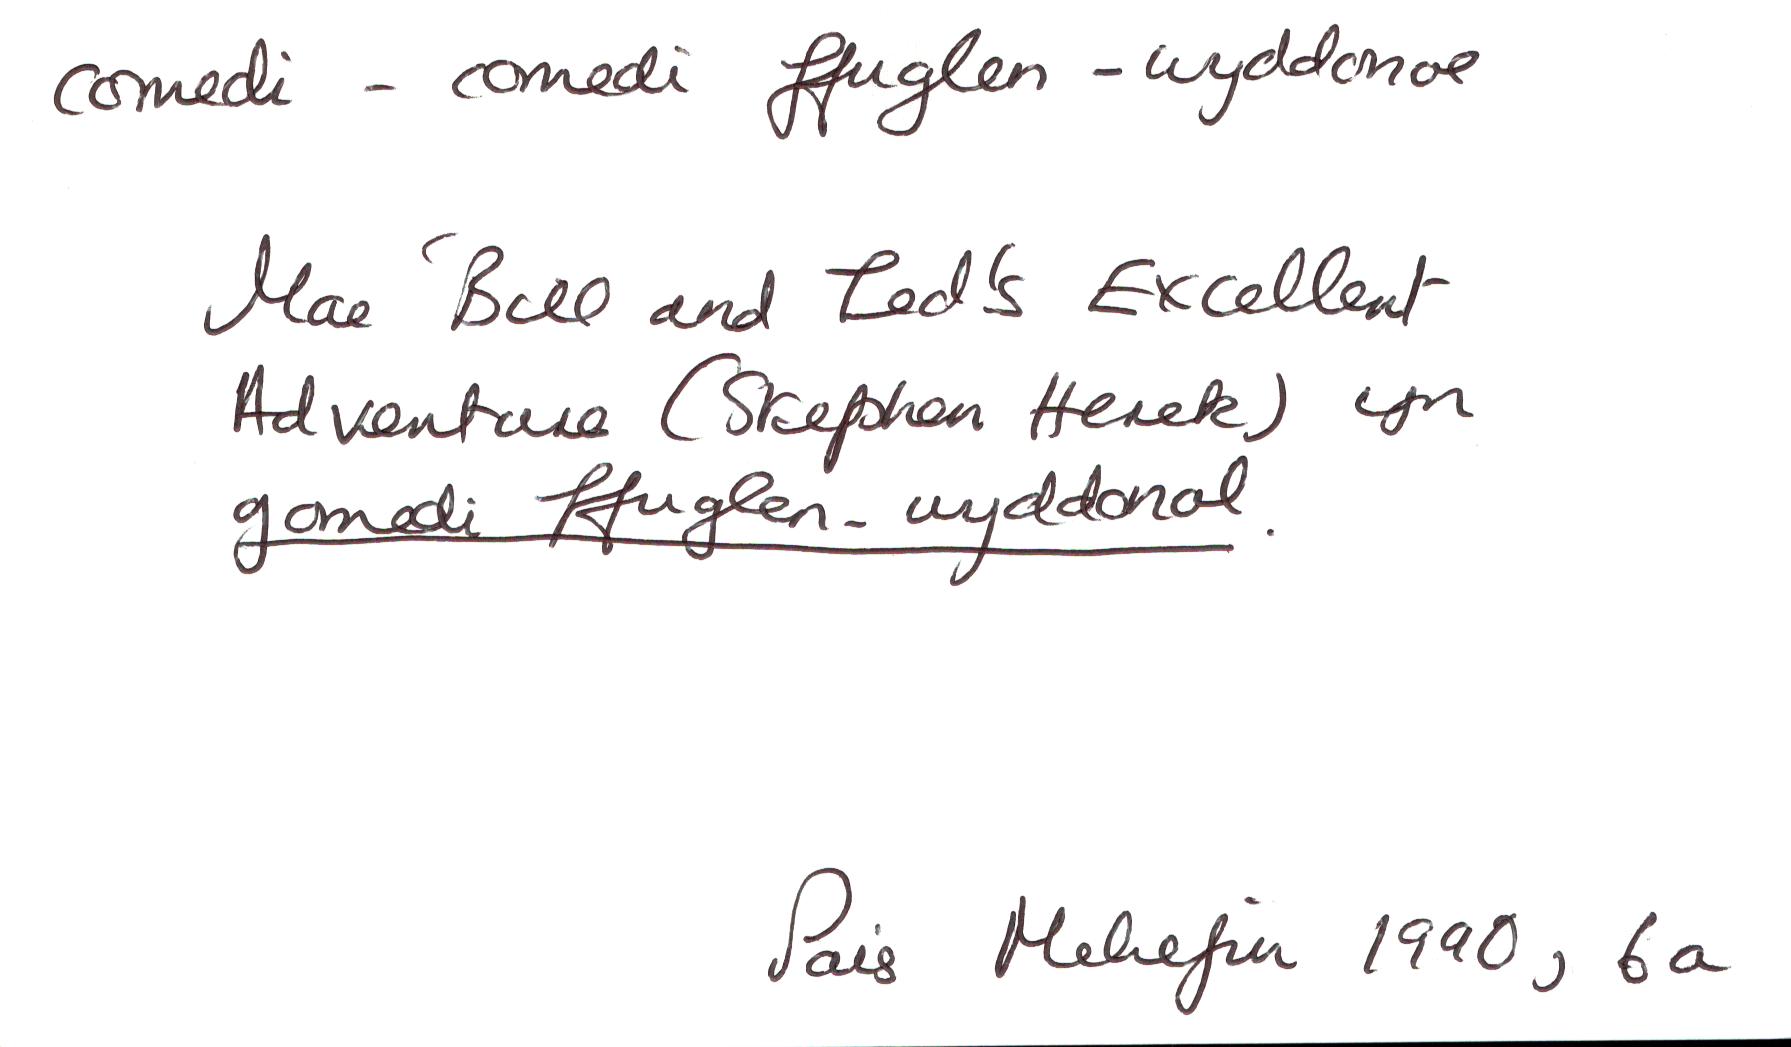 comedi - comedi ffuglen-wyddonol
Mae 'Bill and Ted's Excellent
Adventure (Stephen Herek) yn
gomedi ffuglen-wyddonol.
Pais Mehefin 1990, 6a